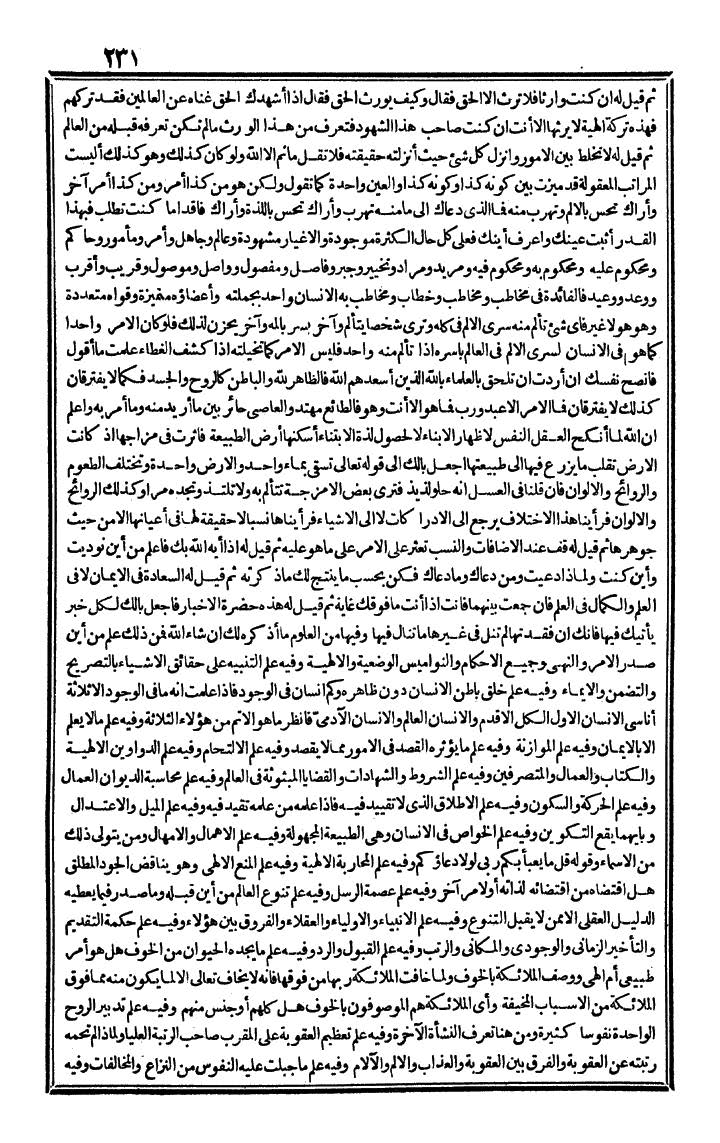 ٢٣١
ثم قيل له ان كنت وارثا فلا ترث الا الحق فقال وكيف يورث الحق فقال اذا أشهدك الحق غناه عن العالمين فقد تركهم
فهذه تركة الهية لا يرثها الا أنت ان كنت صاحب هذا الشهود فتعرف من هذا الورث مالم تكن تعرفه قبله من العالم
ثم قيل له لا تخلط بين الامور وانزل كل شئ حيث أنزلته حقيقته فلا تقل ما ثم الا الله ولو كان كذلك وهو كذلك أليست
المراتب المعقولة قد ميزت بين كونه كذا وكونه كذا والعين واحدة كما تقول ولكن هو من كذا أمر ومن كذا أمر آخر
وأراك تحس بالالم وتهرب منه فما الذى دعاك الى ما منه تهرب وأراك تحس باللذة وأراك فاقدا ما كنت تطلب فبهذا
القدر أثبت عينك واعرف أينك فعلى كل حال الكثرة موجودة والاغيار مشهودة وعالم وجاهل وآمر ومأمور وحاكم
ومحكوم عليه ومحكوم به ومحكوم فيه ومريد ومراد وتخيير وجبر وفاصل ومفصول وواصل وموصول وقريب وأقرب
ووعد ووعيد فالفائدة فى مخاطب ومخاطب وخطاب ومخاطب به الانسان واحد بجملته وأعضاؤه متميزة وقواه متعددة
وهو هو لا غير فاى شئ تألم منه سرى الالم فى كله وترى شخصا يتألم وآخر يسر بالمه وآخر يحزن لذلك فلو كان الامر واحدا
كما هو فى الانسان لسرى الالم فى العالم باسره اذا تألم منه واحد فليس الامر كما تخيلته اذا كشف الغطاء علمت ما أقول
فانصح نفسك ان أردت ان تلحق بالعلماء بالله الذين أسعدهم الله فالظاهر لله والباطن كالروح والجسد فكما لا يفترقان
كذلك لا يفترقان فما الامر الا عبد ورب فما هو الا أنت وهو فالطائع مهتد والعاصى حائر بين ما أريد منه وما أمر به واعلم
ان الله لما أنكح العقل النفس لاظهار الابناء لا لحصول لذة الابتناء أسكنها أرض الطبيعة فاثرت فى مزاجها اذ كانت
الارض تقلب ما يزرع فيها الى طبيعتها اجعل بالك الى قوله تعالى تسقى بماء واحد والارض واحدة وتختلف الطعوم
والروائح والالوان فان قلنا فى العسل انه حلو لذيذ فترى بعض الامزجة تتألم به ولا تلتذ وتجده مرا وكذلك الروائح
والالوان فرأينا هذا الاختلاف يرجع الى الادراكات لا الى الاشياء فرأيناها نسبا لا حقيقة لها فى أعيانها الا من حيث
جوهرها ثم قيل له قف عند الاضافات والنسب تعثر على الامر على ما هو عليه ثم قيل له اذا أيه الله بك فاعلم من أين نوديت
وأين كنت ولماذا دعيت ومن دعاك وما دعاك فكن بحسب ما ينتج لك ماذكرته ثم قيل له السعادة فى الايمان لا فى
العلم والكمال فى العلم فان جمعت بينهما فانت اذا أنت ما فوقك غاية ثم قيل له هذه حضرة الاخبار فاجعل بالك لكل خبر
يأتيك فيها فانك ان فقدتها لم تنل فى غيرها ما تنال فيها وفيها من العلوم ما أذكره لك ان شاء الله فمن ذلك علم من أين
صدر الامر والنهى وجميع الاحكام والنواميس الوضعية والالهية وفيه علم التنبيه على حقائق الاشياء بالتصريح
والتضمن والايماء وفيه علم خلق باطن الانسان دون ظاهره وكم انسان فى الوجود فاذا علمت انه ما فى الوجود الا ثلاثة
أناسى الانسان الاول الكل الاقدم والانسان العالم والانسان الآدمىّ فانظر ما هو الاتم من هؤلاء الثلاثة وفيه علم ما لا يعلم
الا بالايمان وفيه علم الموازنة وفيه علم ما يؤثره القصد فى الامور مما لا يقصد وفيه علم الالتحام وفيه علم الدواوين الالهية
والكتاب والعمال والمتصرفين وفيه علم الشروط والشهادات والقضايا المبثوثة فى العالم وفيه علم محاسبة الديوان العمال
وفيه علم الحركة والسكون وفيه علم الاطلاق الذى لا تقييد فيه فاذا علمه من علمه تقيد فيه وفيه علم الميل والاعتدال
وبايهما يقع التكوين وفيه علم الخواص فى الانسان وهى الطبيعة المجهولة وفيه علم الاهمال والامهال ومن يتولى ذلك
من الاسماء وقوله قل ما يعبأ بكم ربى لولا دعاؤكم وفيه علم المحاربة الالهية وفيه علم المنع الالهى وهو يناقض الجود المطلق
هل اقتضاه من اقتضائه لذاته أو لامر آخر وفيه علم عصمة الرسل وفيه علم تنوع العالم من أين قبله وما صدر فيما يعطيه
الدليل العقلى الا ممن لا يقبل التنوع وفيه علم الانبياء والاولياء والعقلاء والفروق بين هؤلاء وفيه علم حكمة التقديم
والتأخير الزمانى والوجودى والمكانى والرتب وفيه علم القبول والرد وفيه علم ما يجده الحيوان من الخوف هل هو أمر
طبيعى أم الهى ووصف الملائكة بالخوف ولما خافت الملائكة ربها من فوقها فانه لا يخاف تعالى الا لما يكون منه مما فوق
الملائكة من الاسباب المخيفة وأى الملائكة هم الموصوفون بالخوف هل كلهم أو جنس منهم وفيه علم تدبير الروح
الواحدة نفوسا كثيرة ومن هنا تعرف النشأة الآخرة وفيه علم تعظيم العقوبة على المقرب صاحب الرتبة العليا ولماذا لم تحمه
رتبته عن العقوبة والفرق بين العقوبة والعذاب والالم والآلام وفيه علم ما جبلت عليه النفوس من النزاع والمخالفات وفيه